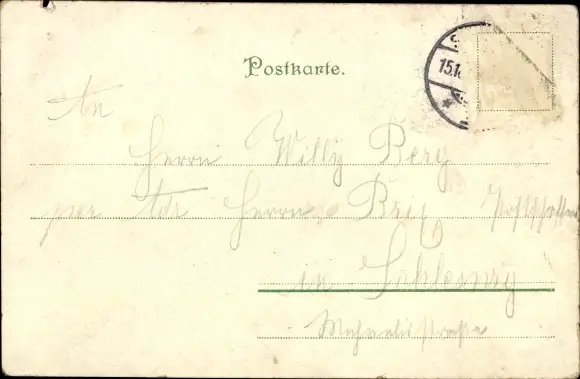 Postkarte.
S
15.1
An
Herrn Willy Berg
per Adr Herrn
in Schleswig